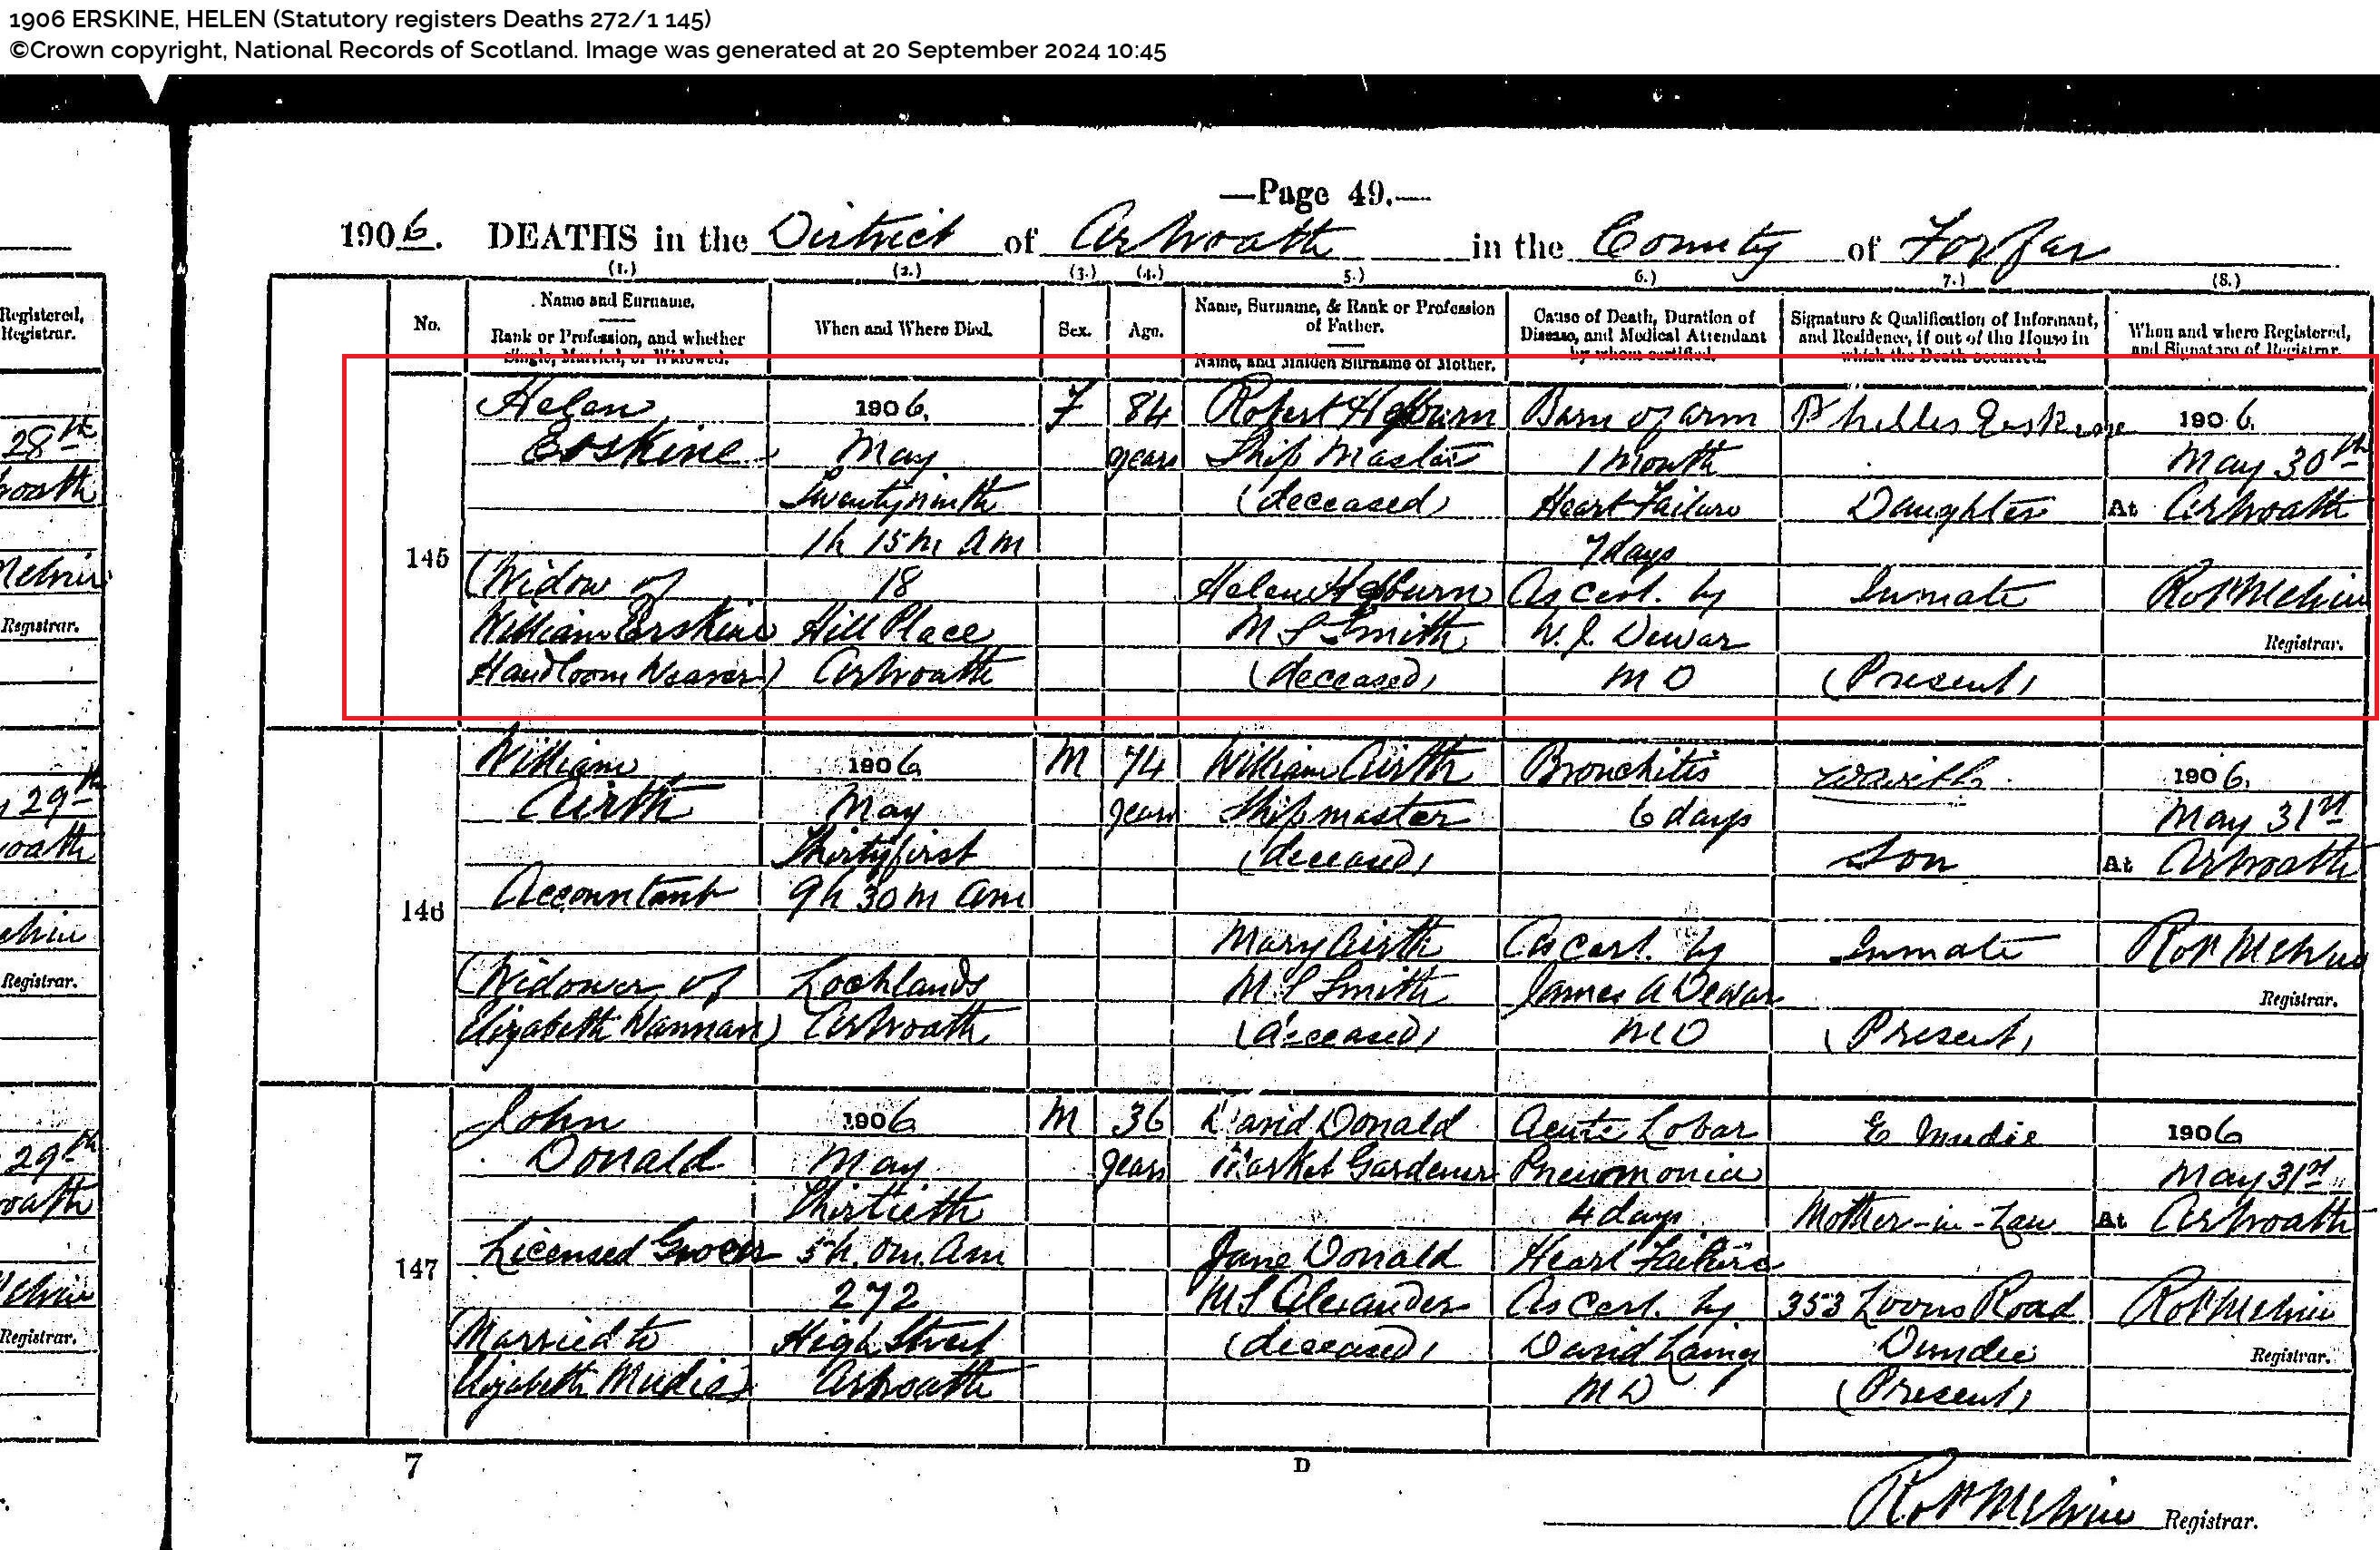 1906 ERSKINE, HELEN (Statutory registers Deaths 272/1 145)
©Crown copyright, National Records of Scotland. Image was generated at 20 September 2024 10:45
—Page 49.—
1906. DEATHS in the District of Arbroath in the County of Forfar
(1.) (2.) (3.) (4.) 5.) 6.) 7.) (8.)
No.
Name and Surname.
Rank or Profession, and whether
Single, Married, or Widowed.
When and Where Died.
Sex.
Age.
Name, Surname, & Rank or Profession
of Father.
Name, and Maiden Surname of Mother.
Cause of Death, Duration of
Disease, and Medical Attendant
by whom certified.
Signature & Qualification of Informant,
and Residence, if out of the House in
which the Death occurred.
When and where Registered,
and Signature of Registrar.
145
Helen
Erskine
(Widow of
William Erskine
Handloom Weaver)
1906
May
Twenty ninth
1h 15m AM
18
Hill Place
Arbroath
F
84
years
Robert Hepburn
Ship Master
(deceased)
Helen Hepburn
M S Smith
(deceased)
Burn of arm
1 month
Heart Failure
7 days
As cert. by
W. J. Dewar
M D
Erskine
Daughter
Inmate
(Present)
1906
May 30th
At Arbroath
Robt Melvin
Registrar.
146
William
Airth
Accountant
(Widower of
Elizabeth Wannan)
1906
May
Thirty first
9h 30m am
Lochlands
Arbroath
M
74
years
William Airth
Shipmaster
(deceased)
Mary Airth
M S Smith
(deceased)
Bronchitis
6 days
As cert. by
James A Dewar
M D
Son
Inmate
(Present)
1906.
May 31st
At Arbroath
Robt Melvin
Registrar.
147
John
Donald
Licensed Grocer
(Married to
Elizabeth Mudie)
1906
May
Thirtieth
5h. 0m. am
272
High Street
Arbroath
M
36
years
David Donald
Market Gardener
Jane Donald
M S Alexander
(deceased)
Acute Lobar
Pneumonia
4 days
Heart Failure
As cert. by
David Laing
M D
E Mudie
Mother-in-Law
353 Loons Road
Dundee
(Present)
1906
May 31st
At Arbroath
Robt Melvin
Registrar.
7
D
Robt Melvin Registrar.
Registered,
Registrar.
28th
Registrar.
29th
Registrar.
29th
Registrar.